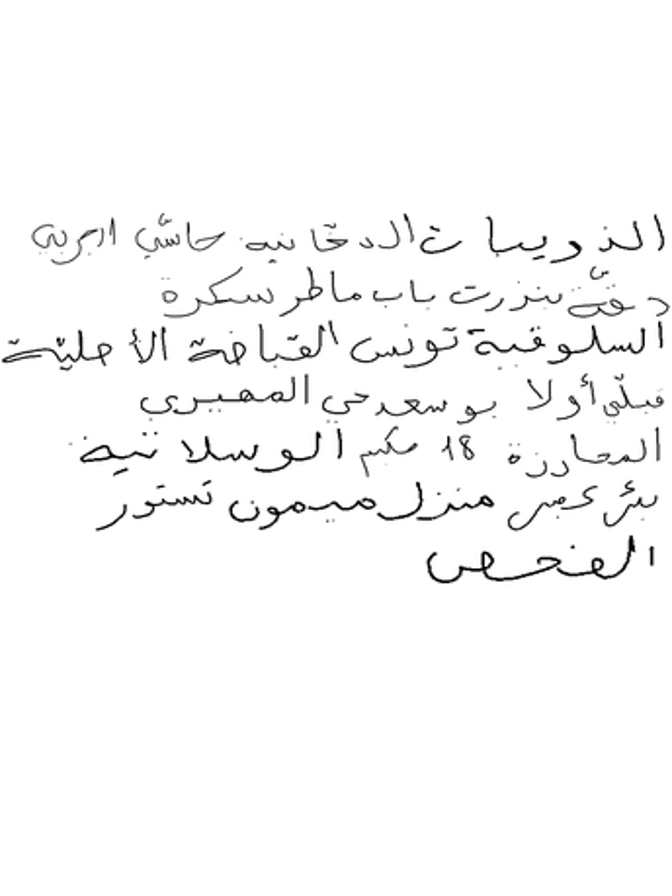 الذويبات الدخانية حاشي الجربي
دقة بنزرت باب ماطر سكرة
السلوقية تونس القباضة الأصلية
قبلي أولا بوسعد حي المهيري
المحارزة 18 مكرر الوسلاتية
بئر عمر منزل ميمون تستور
الفحص